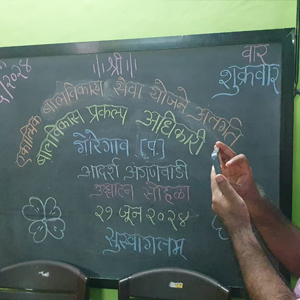 ॥श्री॥
वार
शुक्रवार
२०२४
एकात्मिक बालविकास सेवा योजने अंतर्गत
बालविकास प्रकल्प अधिकारी
गोरेगाव [प]
आदर्श अंगणवाडी
उद्घाटन सोहळा
२१ जून २०२४
सुस्वागतम्